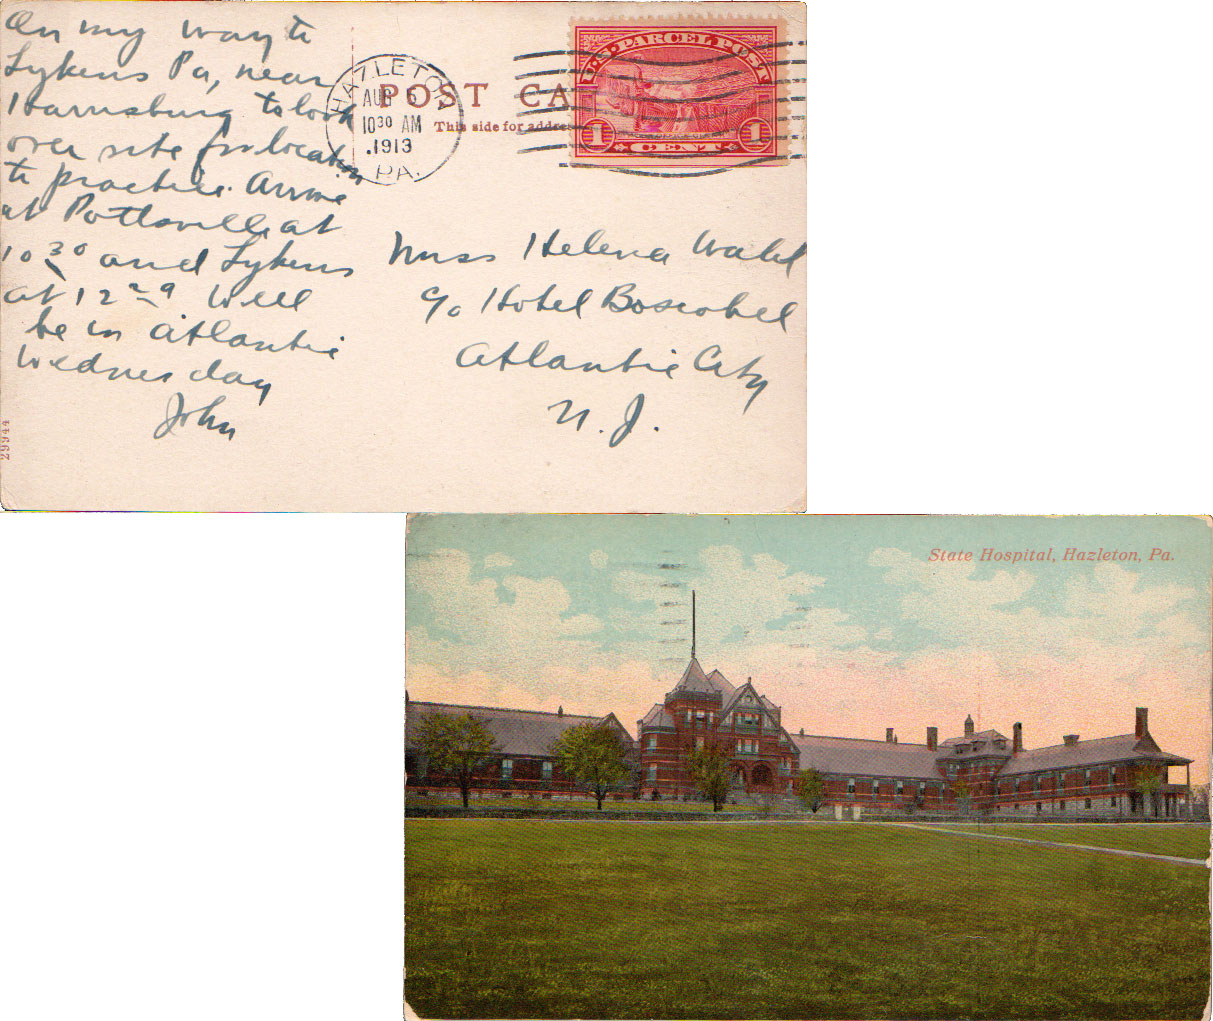 On my way to
Lykens Pa, near
Harrisburg to look
over site for location
to practice. Arrive
at Pottsville at
10 30 and Lykens
at 12 29 Will
be in Atlantic
Wednesday
John
29944
HAZLETON
AUG 5
10 30 AM
1913
PA.
POST CA
This side for addre
U.S. PARCEL POST
1 CENT 1
Miss Helena Wahl
c/o Hotel Boscobel
Atlantic City
N. J.
State Hospital, Hazleton, Pa.